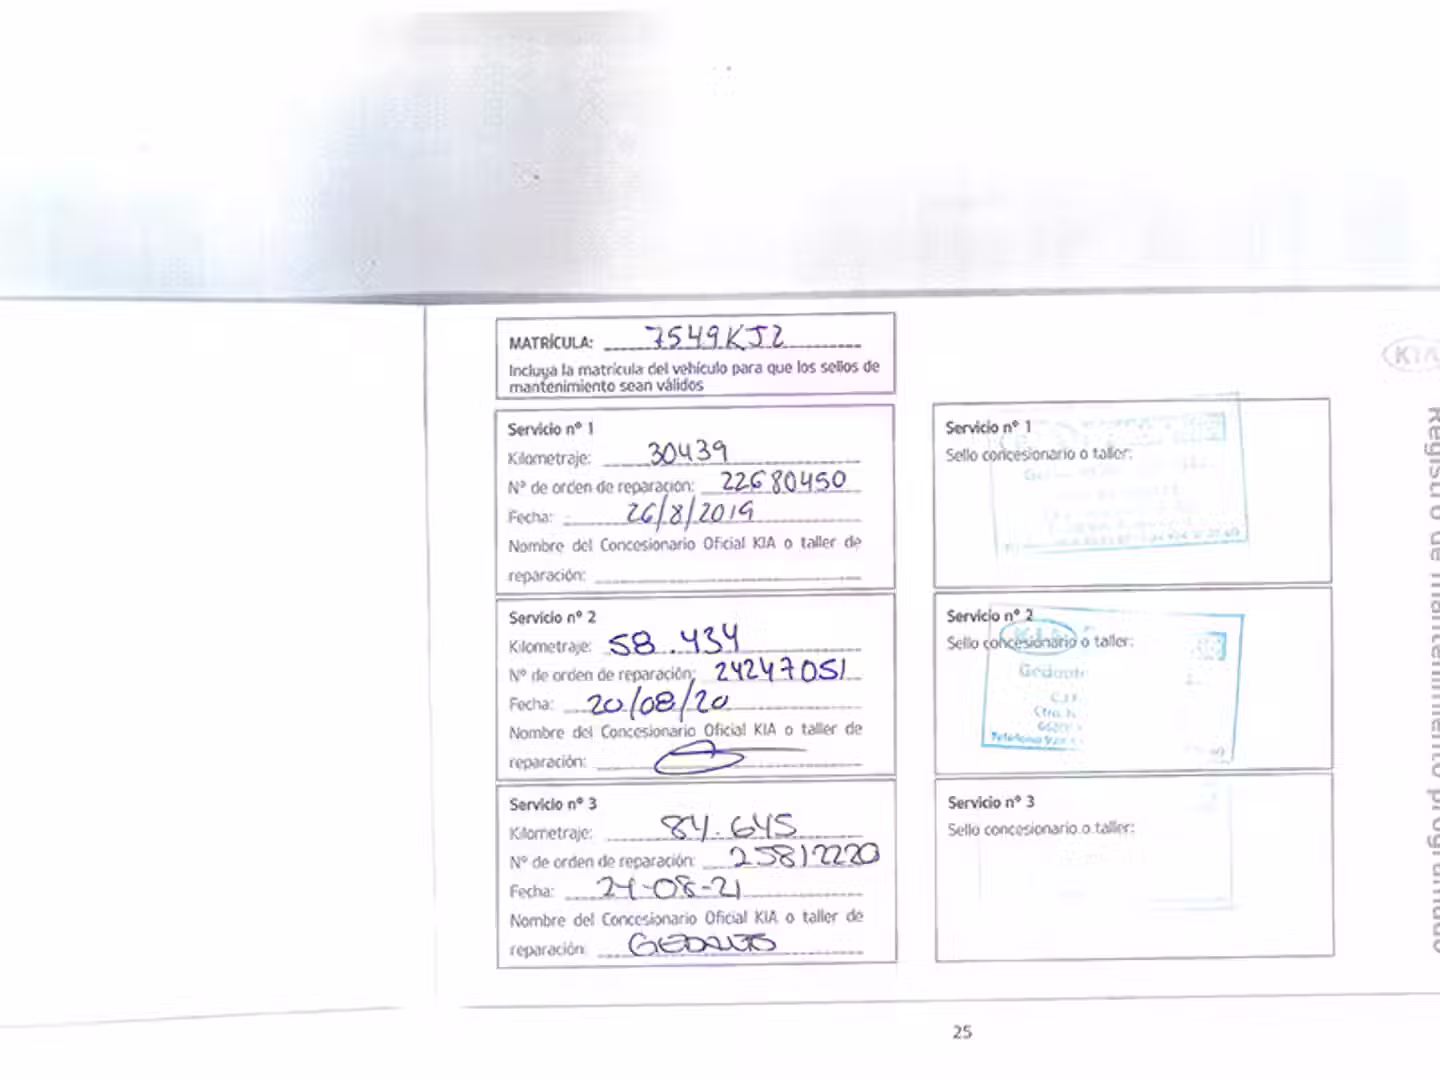 MATRÍCULA: 7549KJZ
Incluya la matrícula del vehículo para que los sellos de
mantenimiento sean válidos
Servicio nº 1
Kilometraje: 30439
Nº de orden de reparación: 22680450
Fecha: 26/8/2019
Nombre del Concesionario Oficial KIA o taller de
reparación:
Servicio nº 1
Sello concesionario o taller:
Servicio nº 2
Kilometraje: 58.434
Nº de orden de reparación: 24247051
Fecha: 20/08/20
Nombre del Concesionario Oficial KIA o taller de
reparación:
Servicio nº 2
Sello concesionario o taller:
KIA
Servicio nº 3
Kilometraje: 84.645
Nº de orden de reparación: 25812220
Fecha: 24-08-21
Nombre del Concesionario Oficial KIA o taller de
reparación: GEDAUTO
Servicio nº 3
Sello concesionario o taller:
KIA
Registro de mantenimiento programado
25